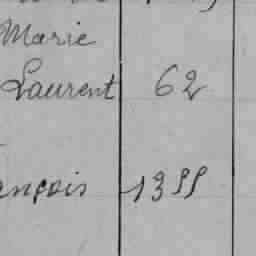 Marie
Laurent 62
ançois 1355